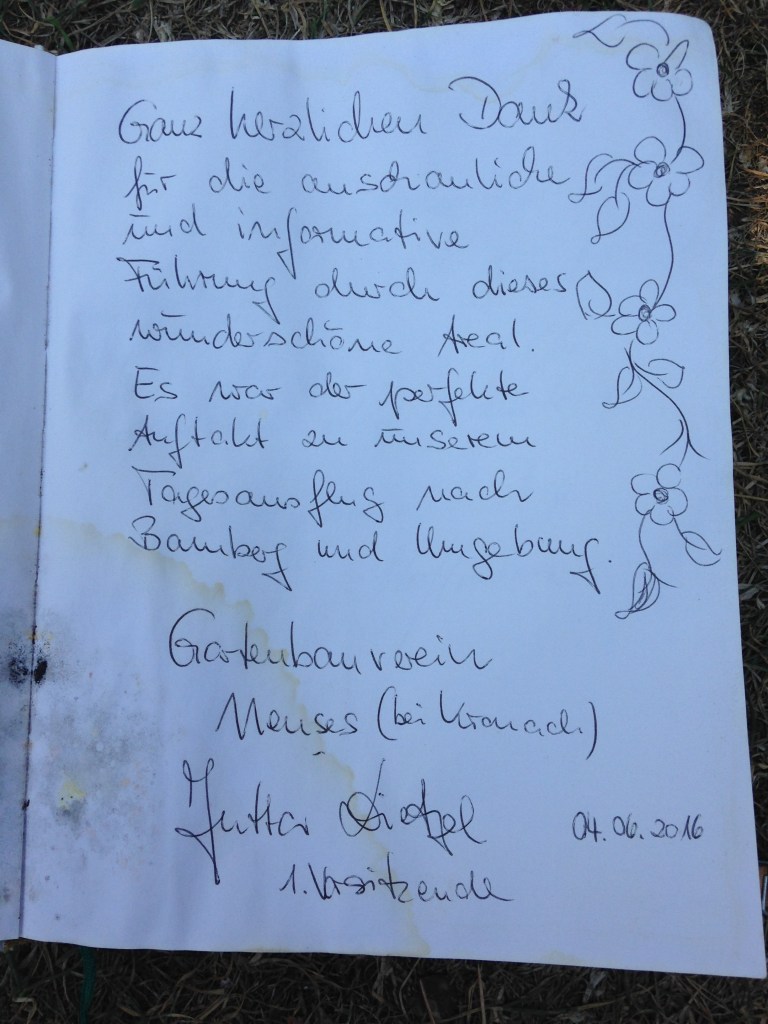 Ganz herzlichen Dank
für die anschauliche
und informative
Führung durch dieses
wunderschöne Areal.
Es war der perfekte
Auftakt zu unserem
Tagesausflug nach
Bamberg und Umgebung.
Gartenbauverein
Neuses (bei Kronach)
Jutta
04.06.2016
1. Vorsitzende